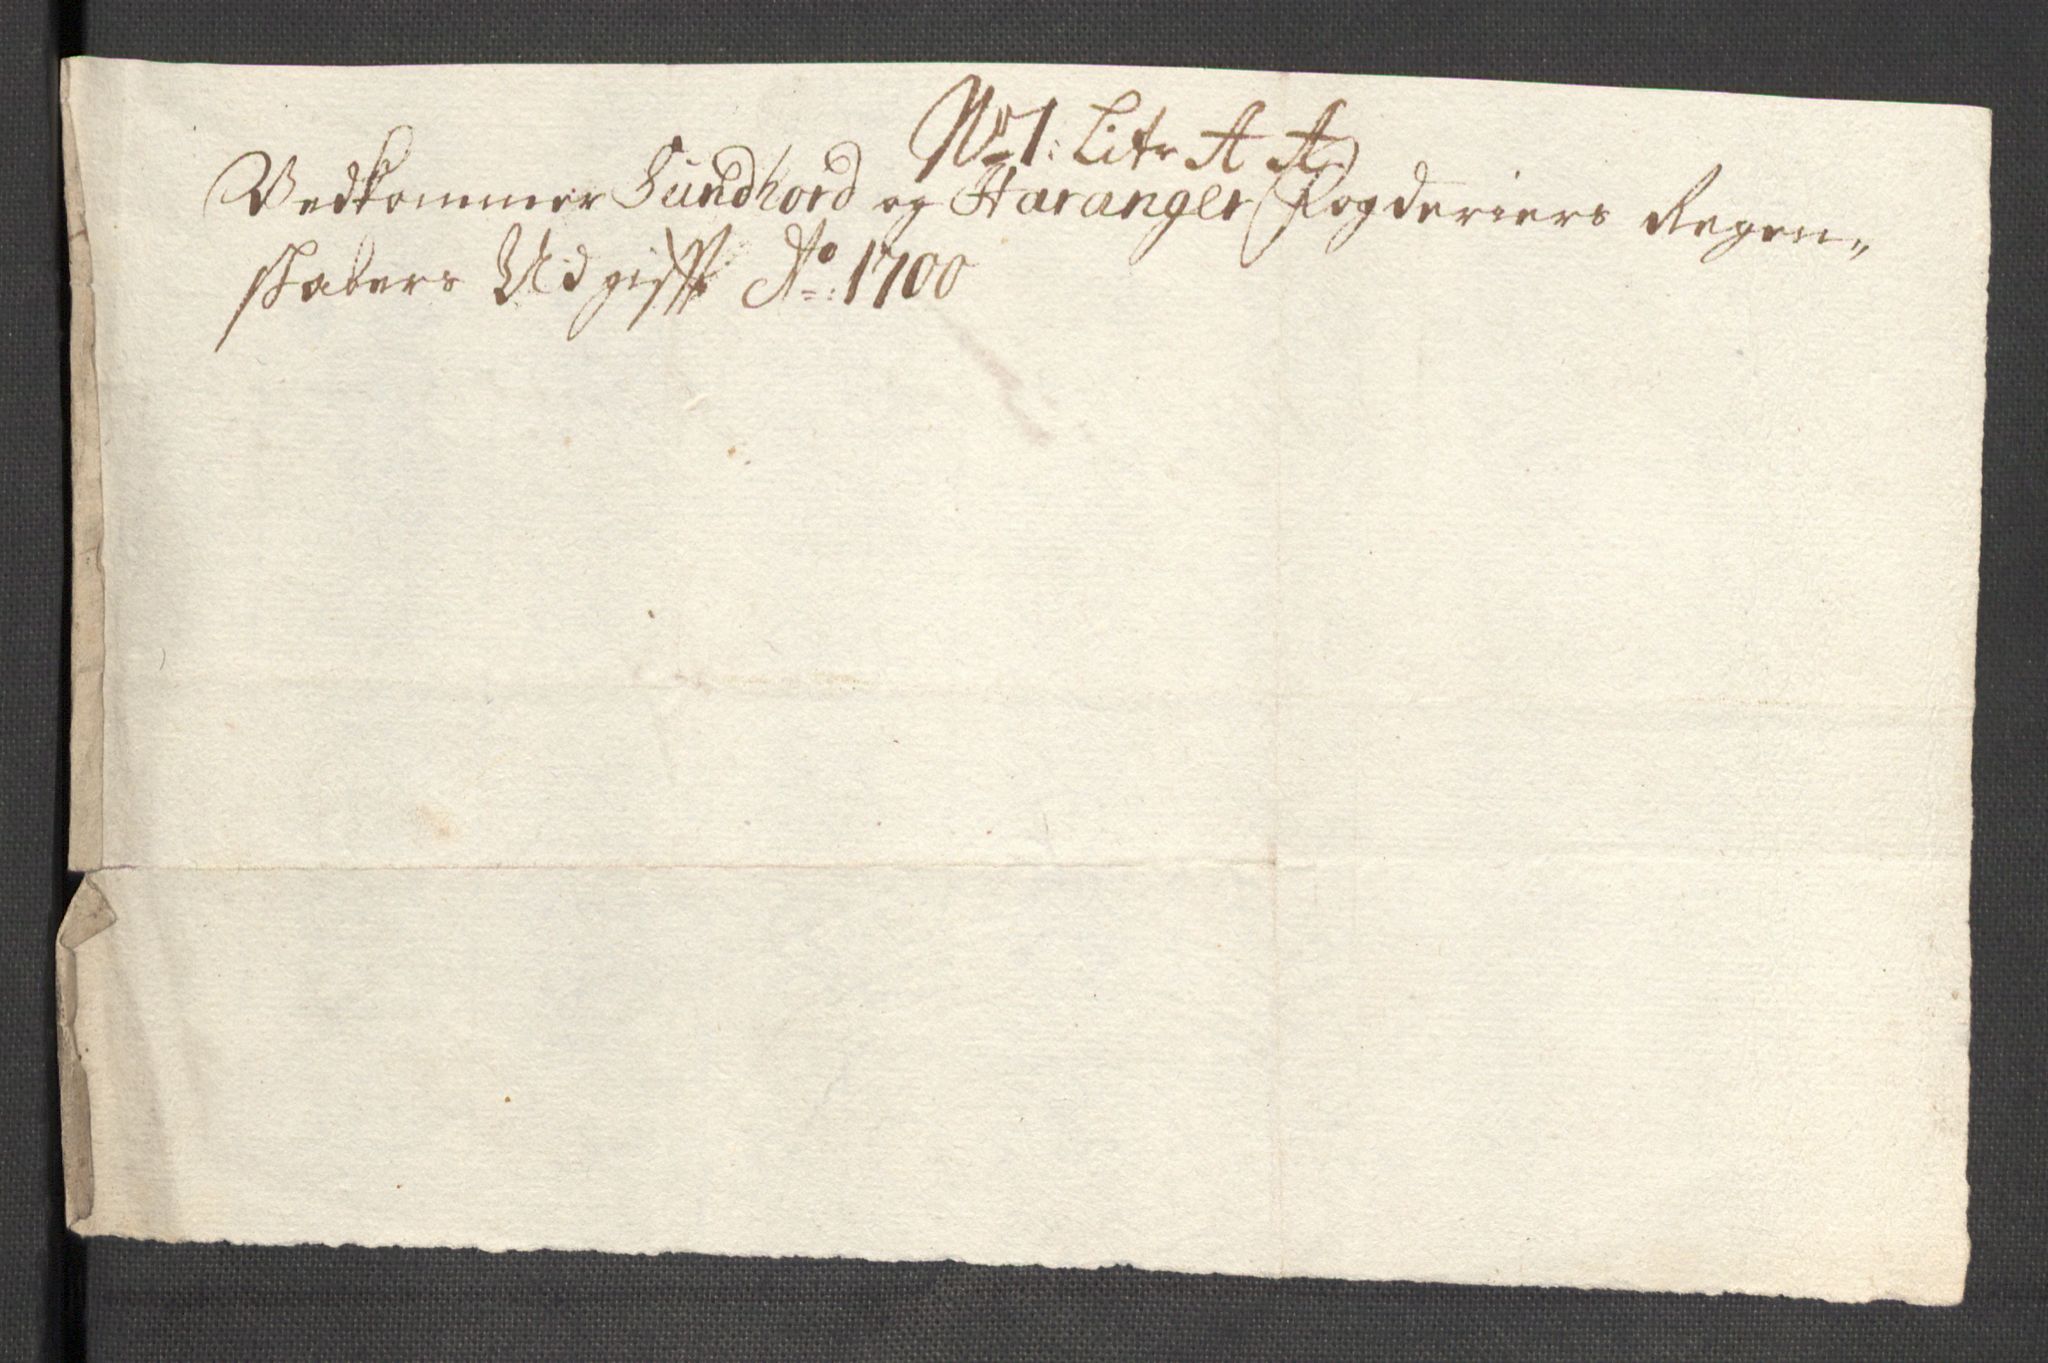 No 1: Litr A A
Vedkommer Sundhord og Haranger Fogderiers Regen„
skabers Udgifft Ao: 1700